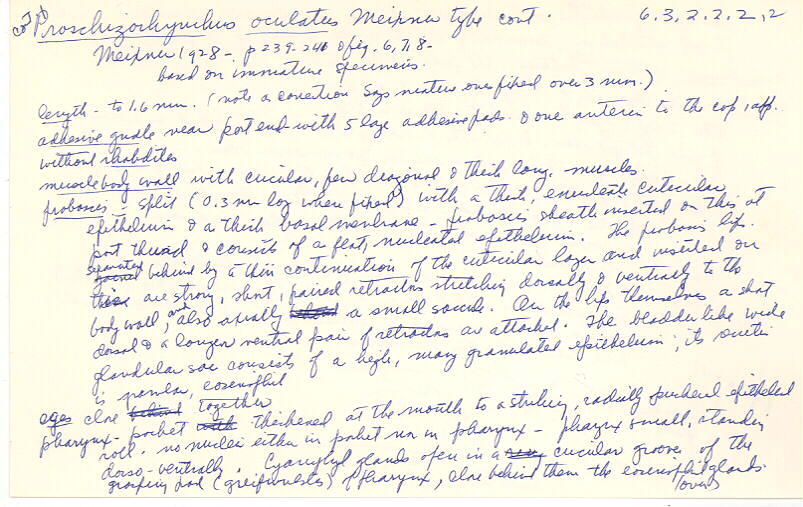 Proschizorhynchus oculatus Meixner type cont. 6.3.2.2.2.2
Meixner 1928 - p 239-246 & fig. 6,7,8 -
based on immature specimens.
length - to 1.6 mm. (note a correction says mature ones fixed over 3 mm.)
adhesive girdle near post end with 5 large adhesive pads & one anterior to the cop. app.
without rhabdites
muscle body wall with circular, few diagonal & thick long. muscles.
proboscis - split (0.3 mm long when fixed) with a thick, enucleate cuticular
epithelium & a thick basal membrane - proboscis sheath inserted on this at
post third & consists of a flat, nucleated epithelium. The proboscis lips
separated behind by a thin continuation of the cuticular layer and inserted on
this are strong, short, paired retractors stretching dorsally & ventrally to the
body wall, and also axially a small saccule. On the lips themselves a short
dorsal & a longer ventral pair of retractors are attached. The bladder like wide
glandular sac consists of a high, many granulated epithelium; its
is granular, eosinophil
eyes close together
pharynx - pocket thickened at the mouth to a striking, radially epithelial
roll. no nuclei either in pocket nor in pharynx - pharynx small, standing
dorso-ventrally. glands open in a circular groove of the
grasping pad (greifwulstes) of pharynx, close behind them the eosinophil glands
(over)